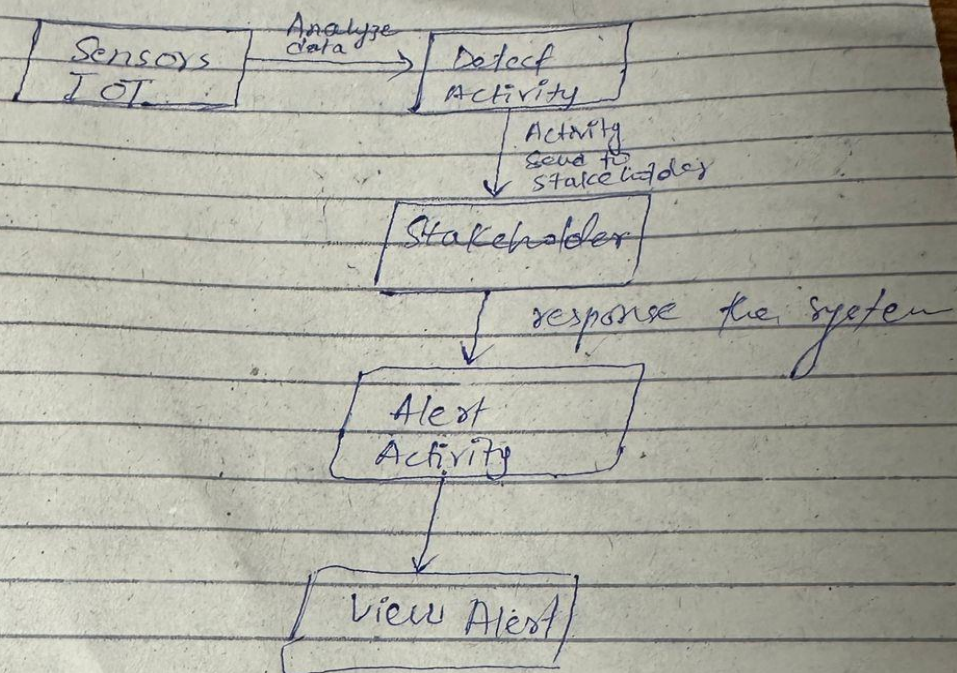 Sensors
IOT
Analyze
data
Detect
Activity
Activity
Send to
Stakeholder
Stakeholder
response the system
Alert
Activity
View Alert